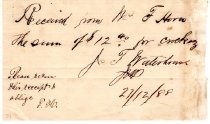 Received from Mr F Horn
the sum of $12.00 for cooking
J. F. Waterhouse
Please return
this receipt &
oblige F.H.
27/12/88